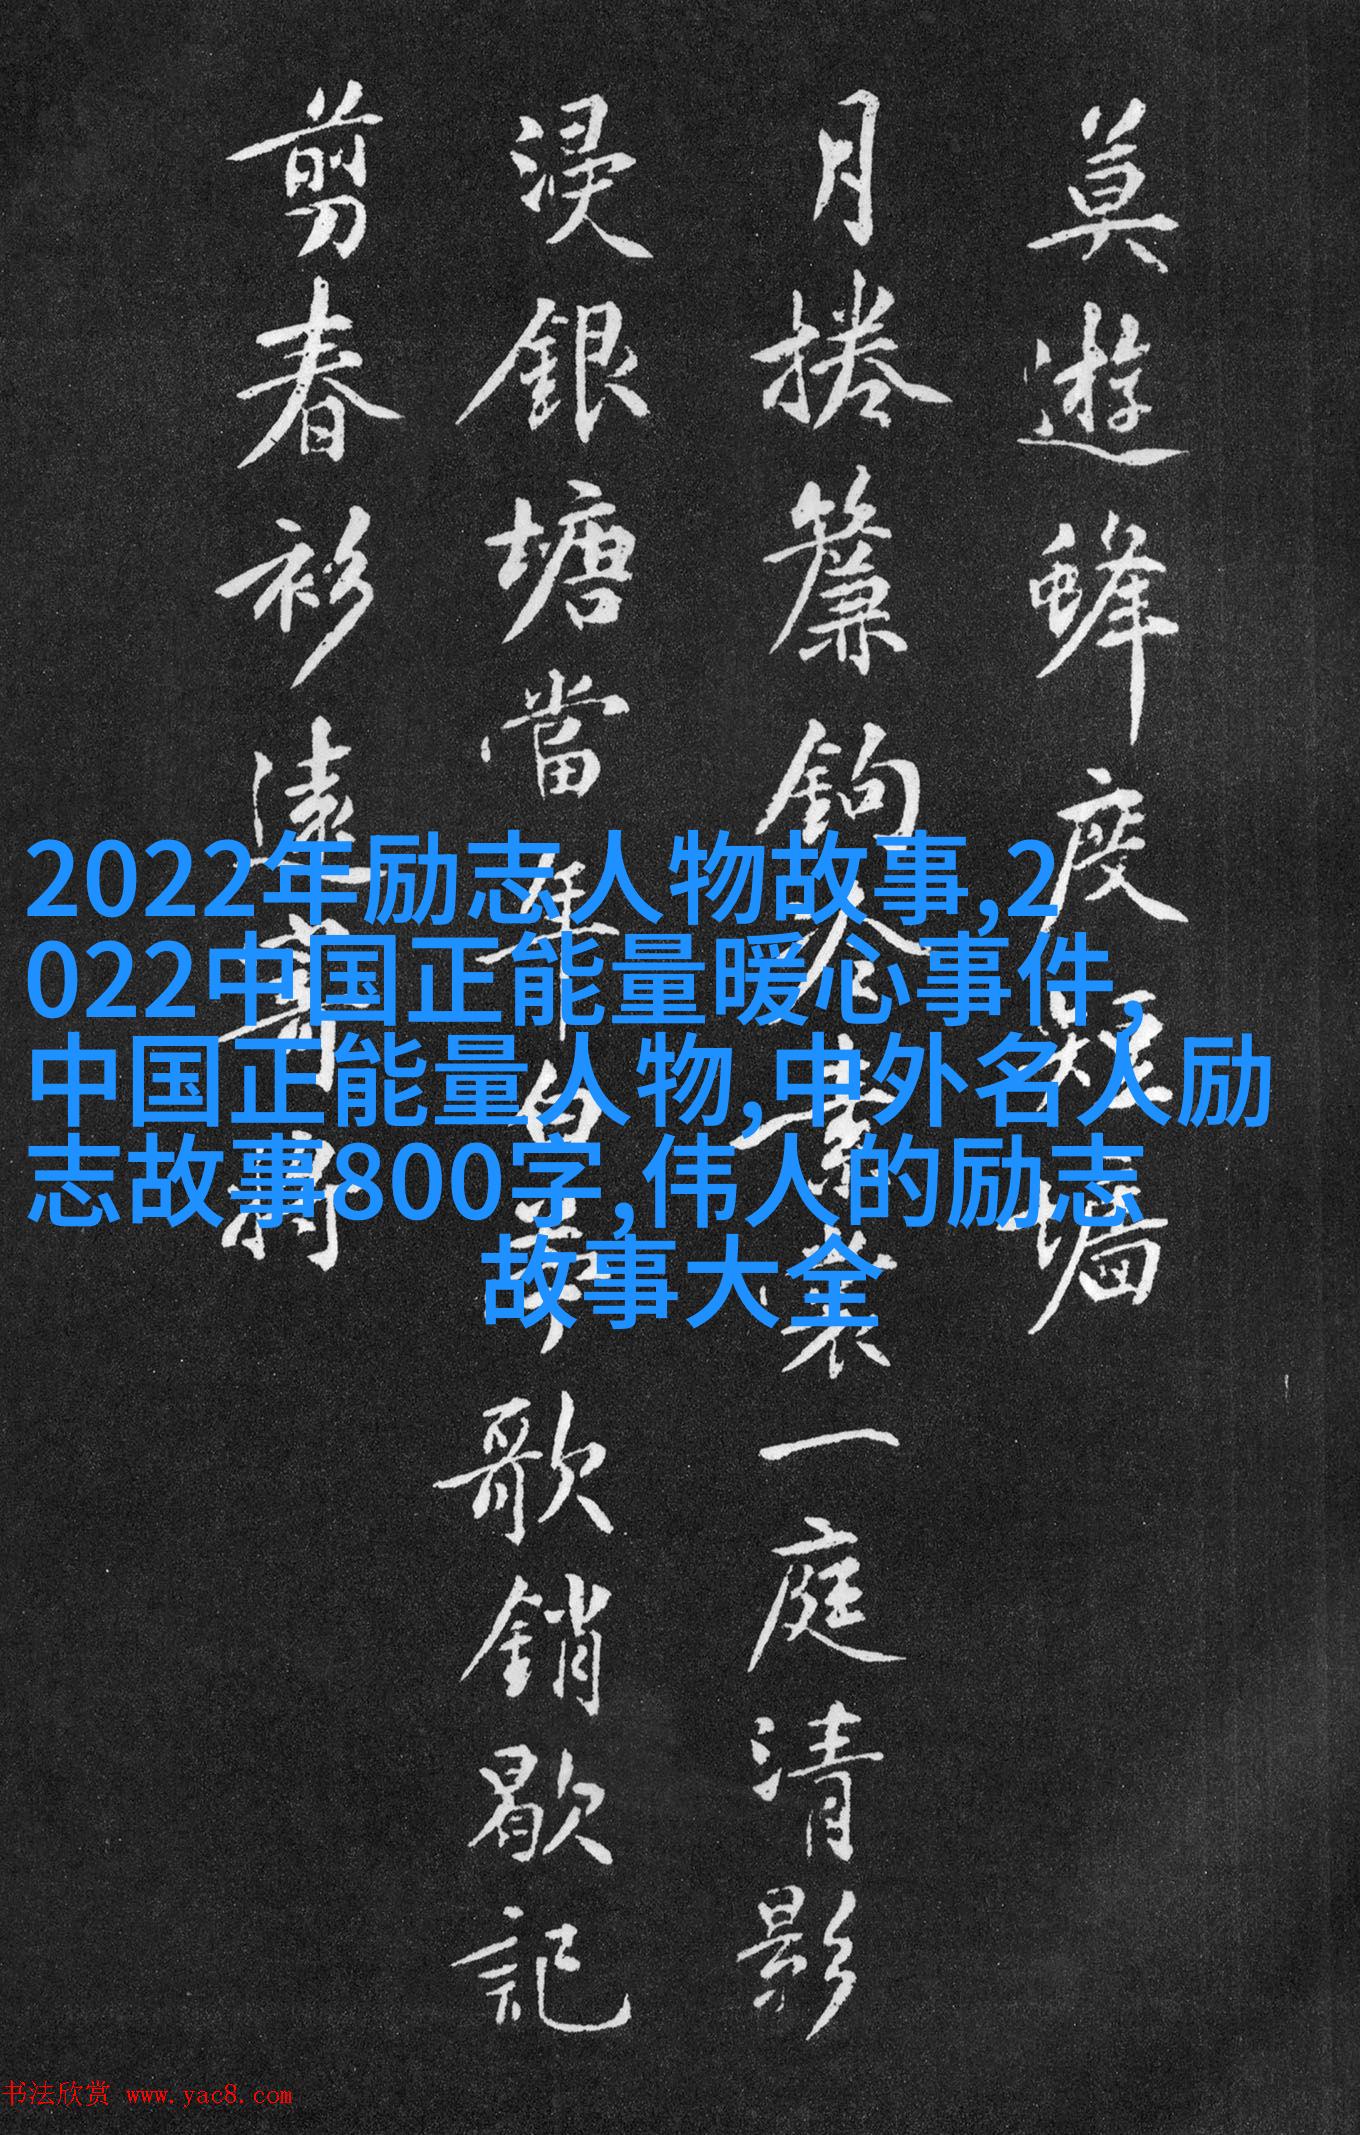 莫遊蜂度短墻
月捲簾鉤素一庭清影
浸銀塘當年白苧歌銷歇記
剪春衫遠寄將
2022年励志人物故事,2
022中国正能量暖心事件,
中国正能量人物,中外名人励
志故事800字,伟人的励志
故事大全
书法欣赏 www.yac8.com